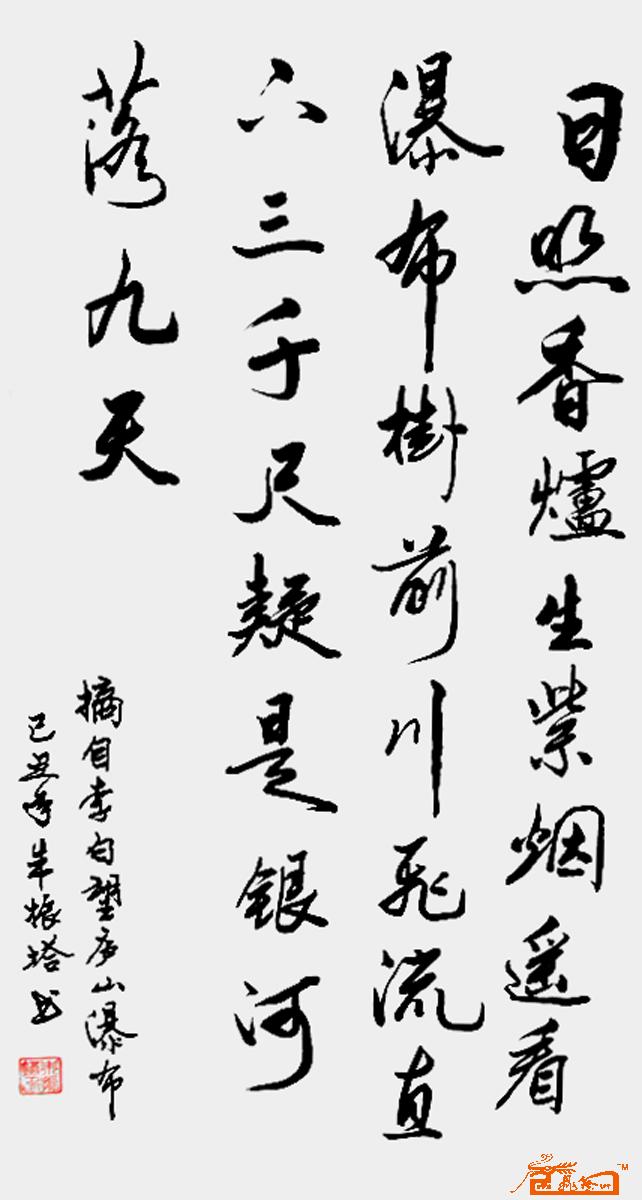 日照香爐生紫烟遥看
瀑布樹前川飛流直
下三千尺疑是銀河
落九天
摘自李白望庐山瀑布
己丑年朱振塔书